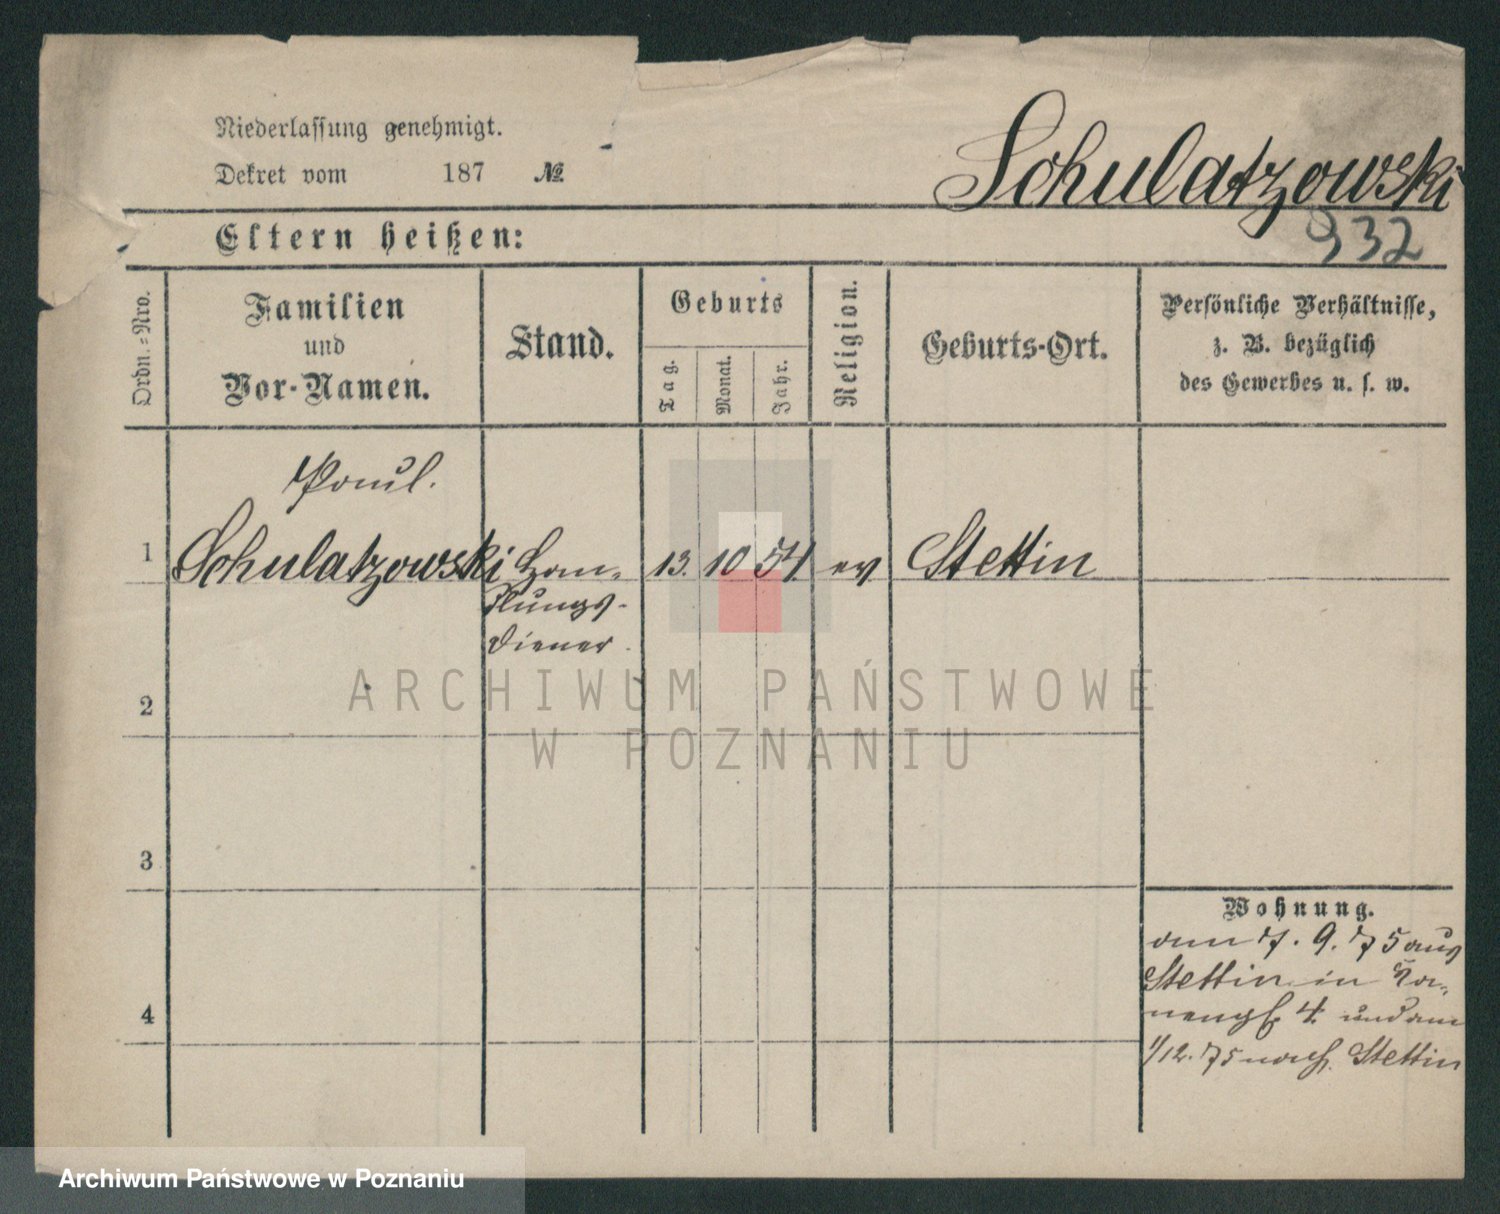 Niederlassung genehmigt.
Dekret vom 187 №
Schulatzowski
932
Eltern heißen:
Ordn.-Nro.
Familien
und
Vor-Namen.
Stand.
Geburts
Tag.
Monat.
Jahr.
Religion.
Geburts-Ort.
Persönliche Verhältnisse,
z. B. bezüglich
des Gewerbes u. s. w.
Paul.
1 Schulatzowski Han- 13. 10 54 ev Stettin
dlungs-
diener.
2
3
4
Wohnung.
am 7. 9. 75 aus
Stettin in
4. und am
1/12. 75 nach Stettin
ARCHIWUM PAŃSTWOWE
W POZNANIU
Archiwum Państwowe w Poznaniu